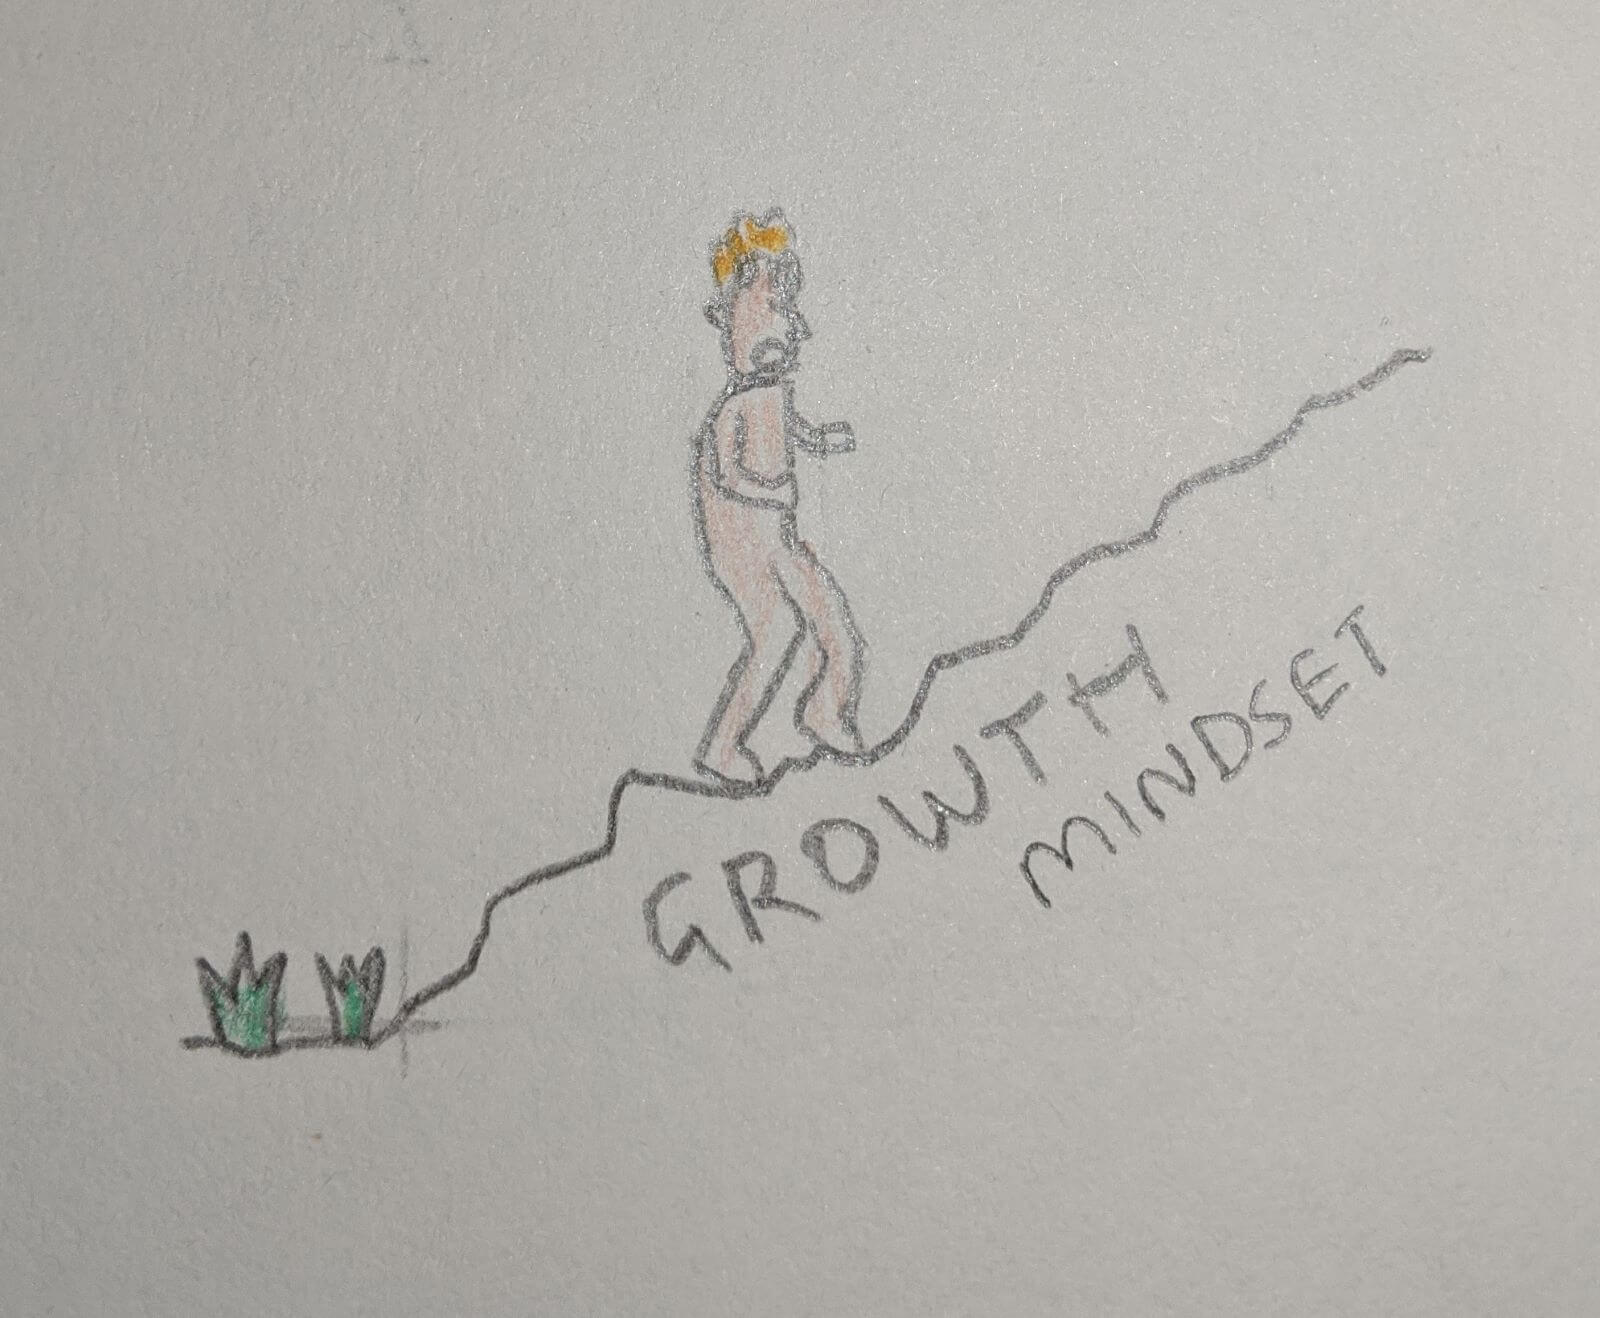 GROWTH
MINDSET